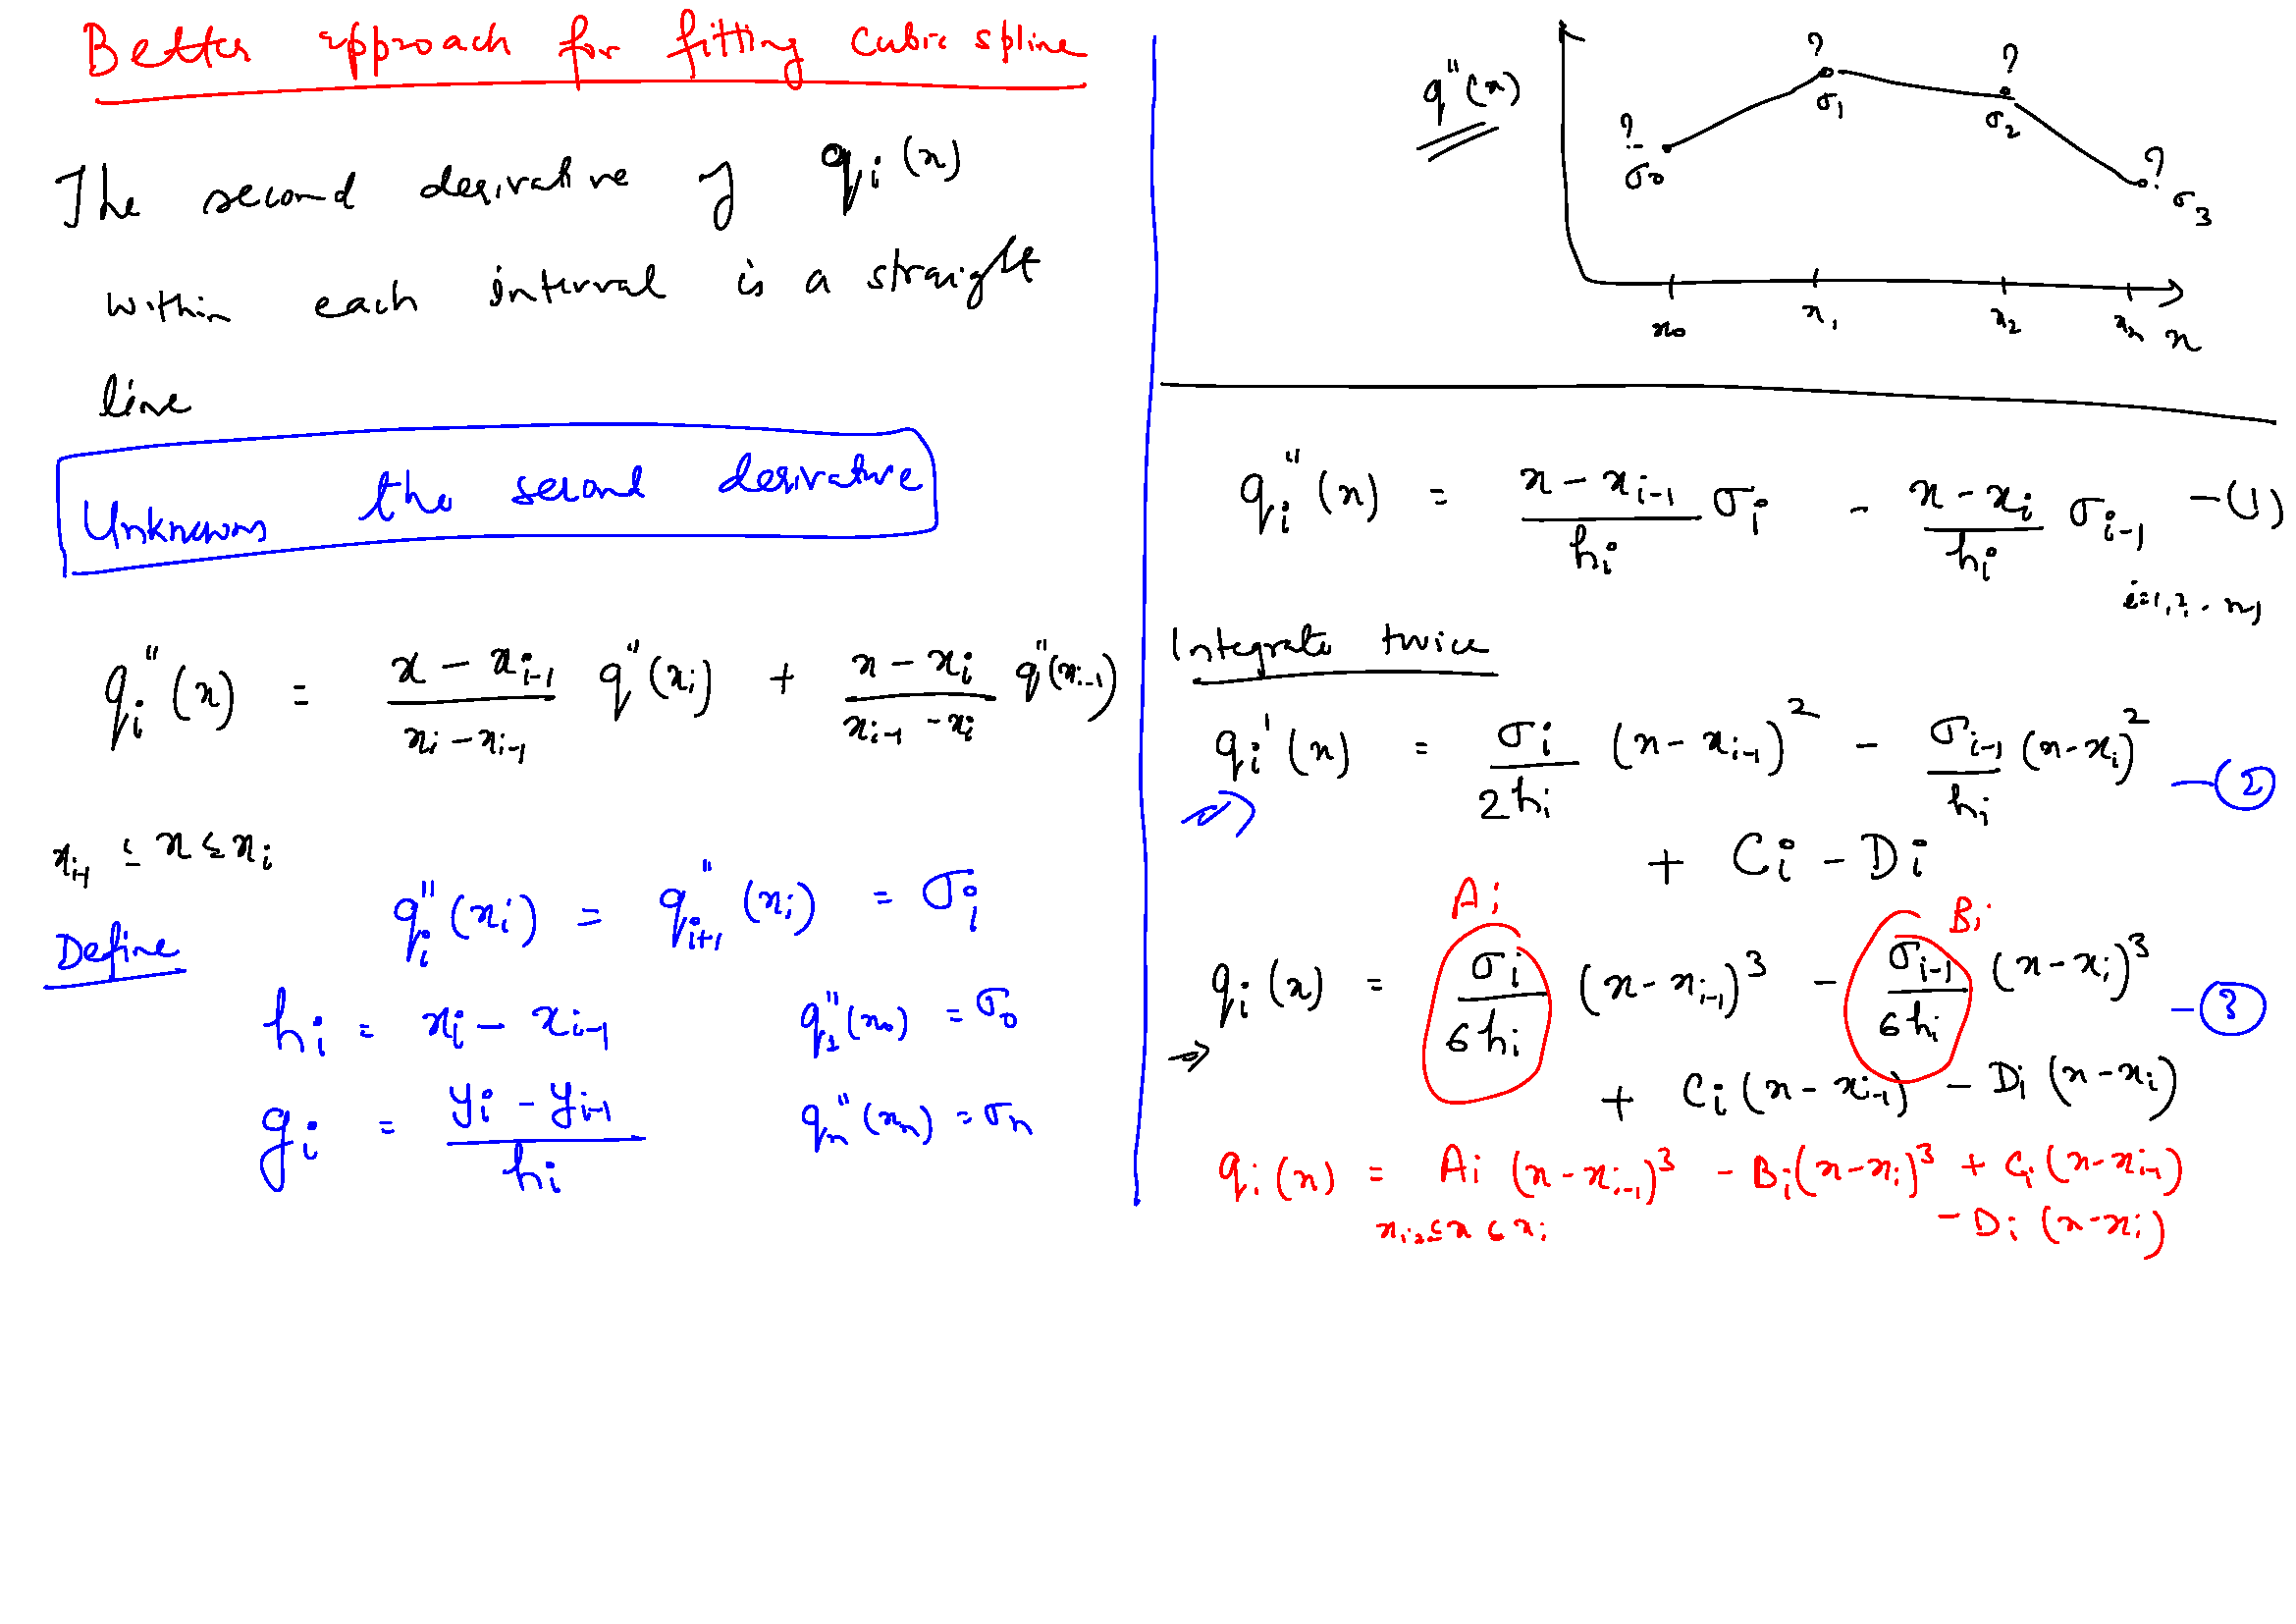 Better approach for fitting cubic spline
The second derivative of qᵢ(x)
within each interval is a straight
line
Unknowns the second derivative
qᵢ''(x) = (x - xᵢ₋₁)/(xᵢ - xᵢ₋₁) q''(xᵢ) + (x - xᵢ)/(xᵢ₋₁ - xᵢ) q''(xᵢ₋₁)
xᵢ₋₁ ≤ x ≤ xᵢ
Define qᵢ''(xᵢ) = qᵢ₊₁''(xᵢ) = σᵢ
hᵢ = xᵢ - xᵢ₋₁ q₁''(x₀) = σ₀
gᵢ = (yᵢ - yᵢ₋₁)/hᵢ qₙ''(xₙ) = σₙ
q''(x)
? ? ? ?
σ₀ σ₁ σ₂ σ₃
x₀ x₁ x₂ x₃ x
qᵢ''(x) = (x - xᵢ₋₁)/hᵢ σᵢ - (x - xᵢ)/hᵢ σᵢ₋₁ -(1)
Integrate twice
qᵢ'(x) = σᵢ/2hᵢ (x - xᵢ₋₁)² - σᵢ₋₁/hᵢ (x - xᵢ)² - ②
+ Cᵢ - Dᵢ
Aᵢ Bᵢ
⇒ qᵢ(x) = σᵢ/6hᵢ (x - xᵢ₋₁)³ - σᵢ₋₁/6hᵢ (x - xᵢ)³ - ③
+ Cᵢ(x - xᵢ₋₁) - Dᵢ(x - xᵢ)
qᵢ(x) = Aᵢ(x - xᵢ₋₁)³ - Bᵢ(x - xᵢ)³ + Cᵢ(x - xᵢ₋₁)
- Dᵢ(x - xᵢ)